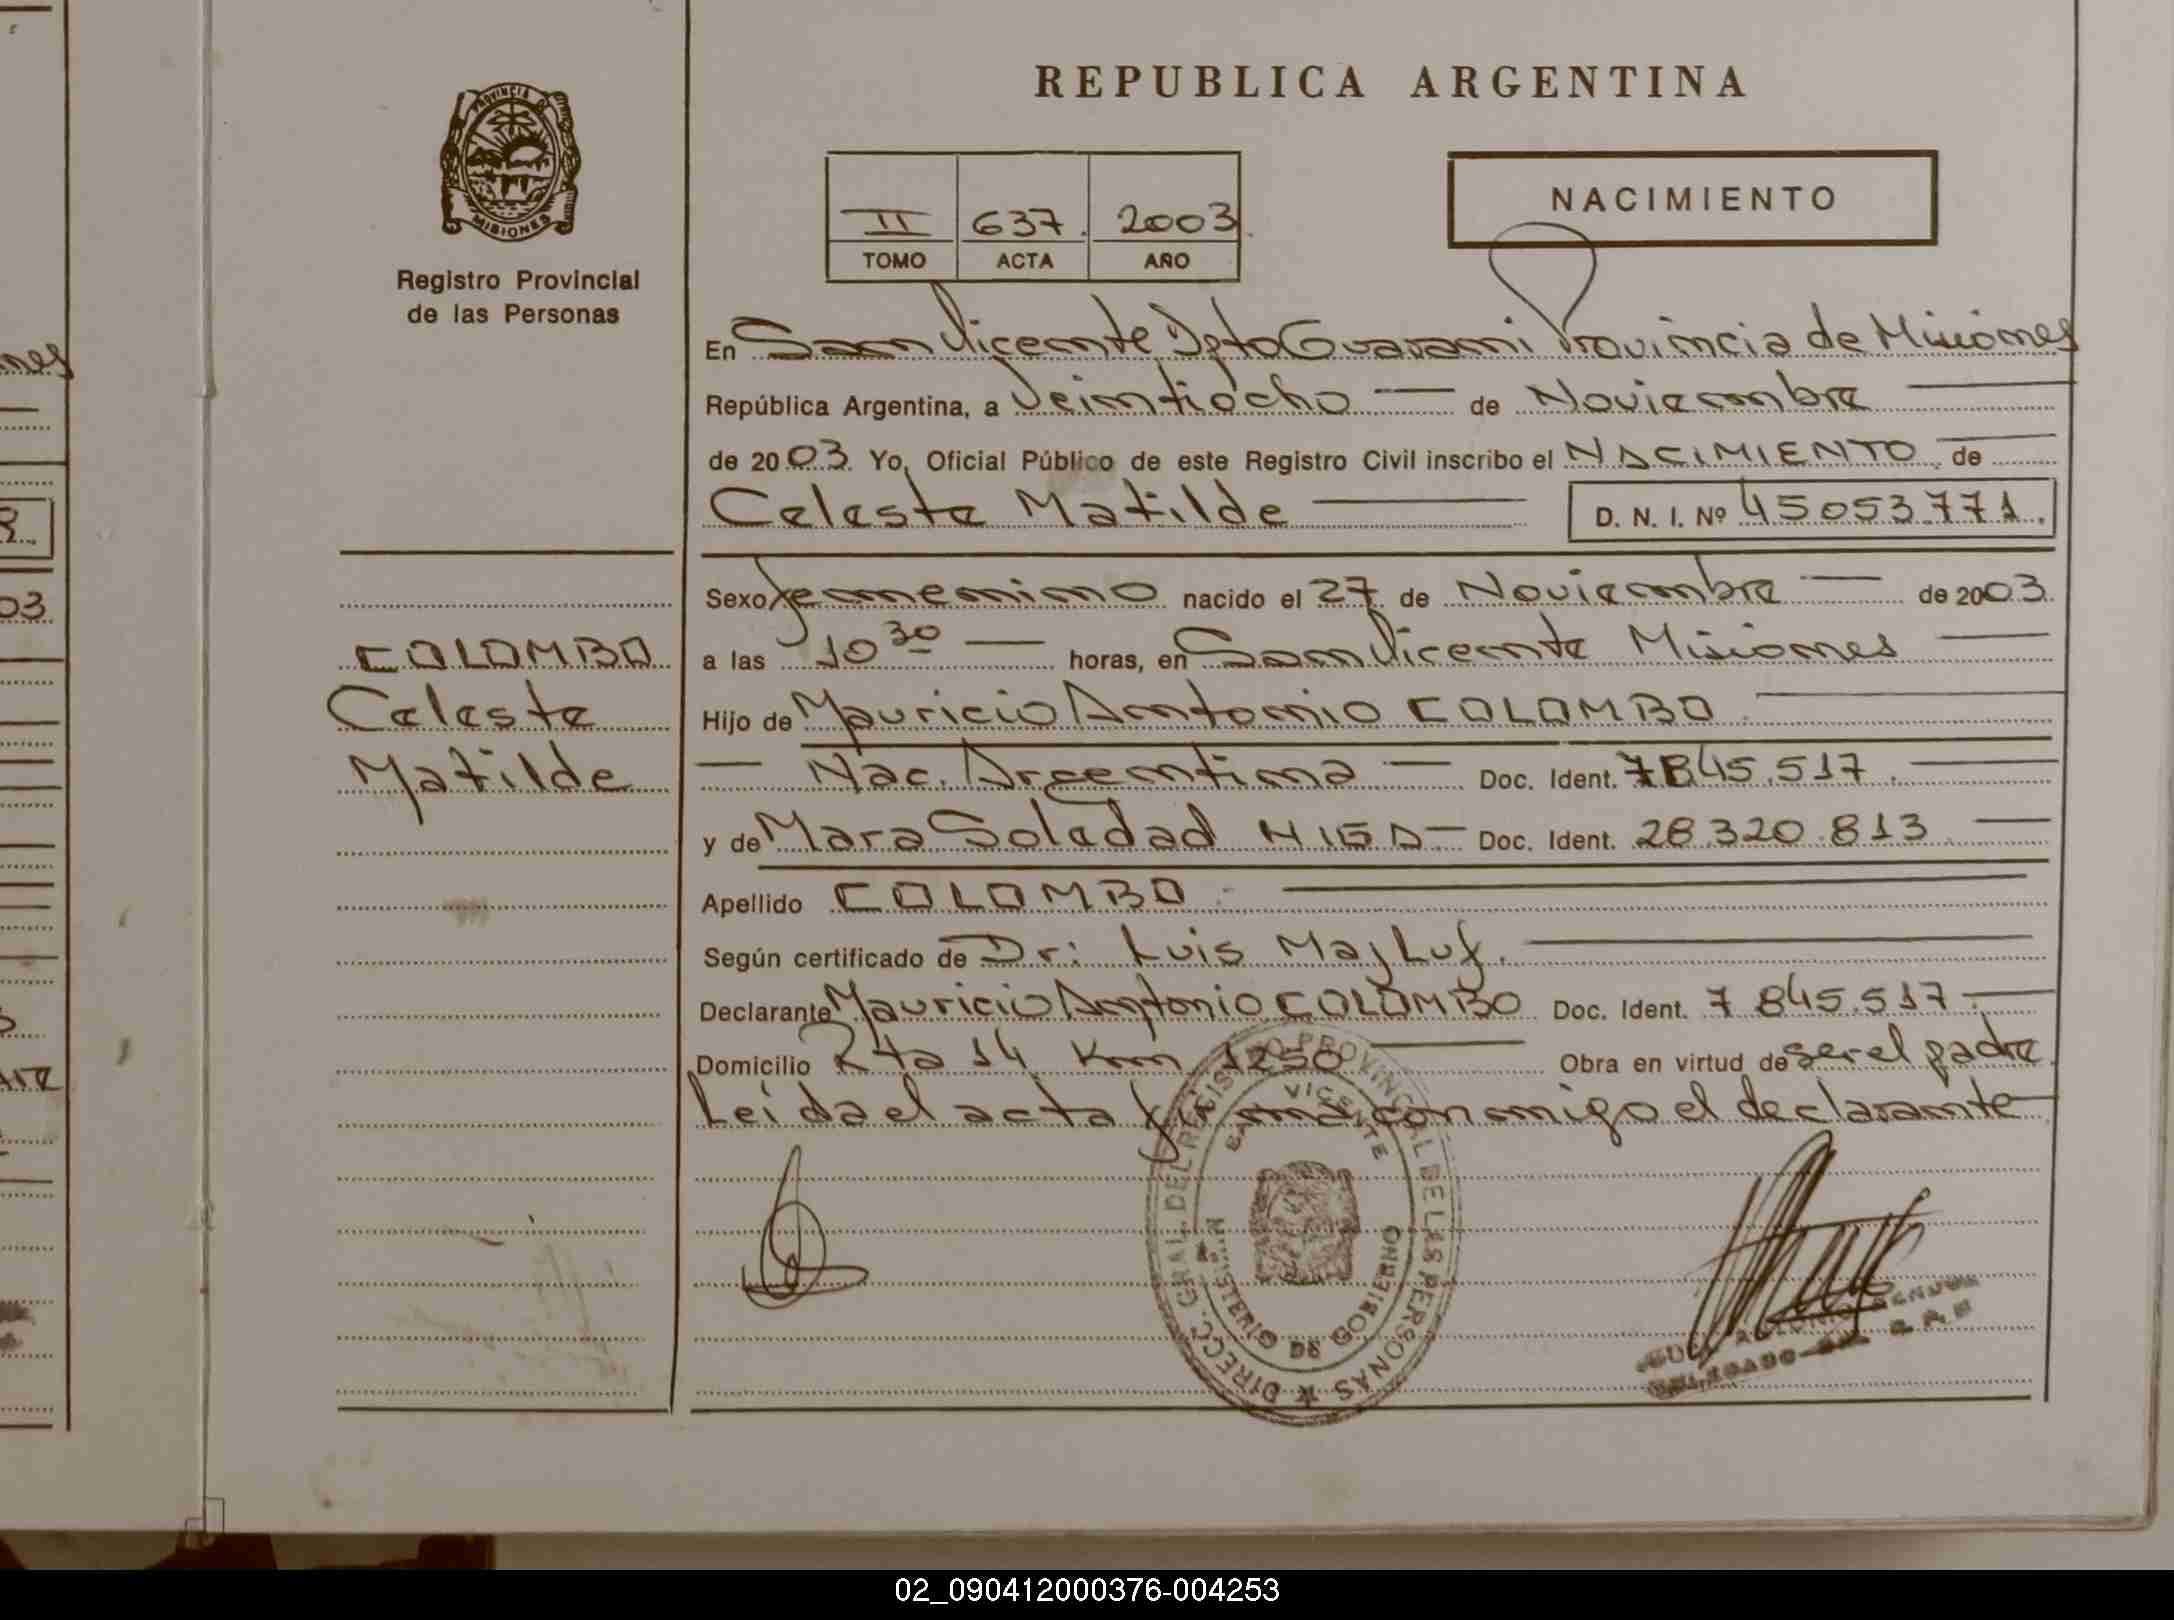 REPUBLICA ARGENTINA
PROVINCIA DE
MISIONES
Registro Provincial
de las Personas
II 637. 2003.
TOMO ACTA AÑO
NACIMIENTO
En San Vicente Dpto Guarani Provincia de Misiones
República Argentina, a Veintiocho de Noviembre
de 2003. Yo, Oficial Público de este Registro Civil inscribo el NACIMIENTO de
Celeste Matilde D. N. I. Nº 45053.771.
Sexo femenino nacido el 27 de Noviembre de 2003.
COLOMBO
Celeste
Matilde
a las 10 30 horas, en San Vicente Misiones
Hijo de Mauricio Antonio COLOMBO.
Nac. Argentina Doc. Ident. 7845.517.
y de Mara Soledad Doc. Ident. 28.320.813
Apellido COLOMBO.
Según certificado de Dr: Luis Majluf.
Declarante Mauricio Antonio COLOMBO Doc. Ident. 7 845.517.
Domicilio Rta 14 Km 1250 Obra en virtud de ser el padre.
Leida el acta firma conmigo el declarante
DIRECC. GRAL. DEL REGISTRO PROVINCIAL DE LAS PERSONAS
SAN VICENTE
MINISTERIO DE GOBIERNO
02_090412000376-004253